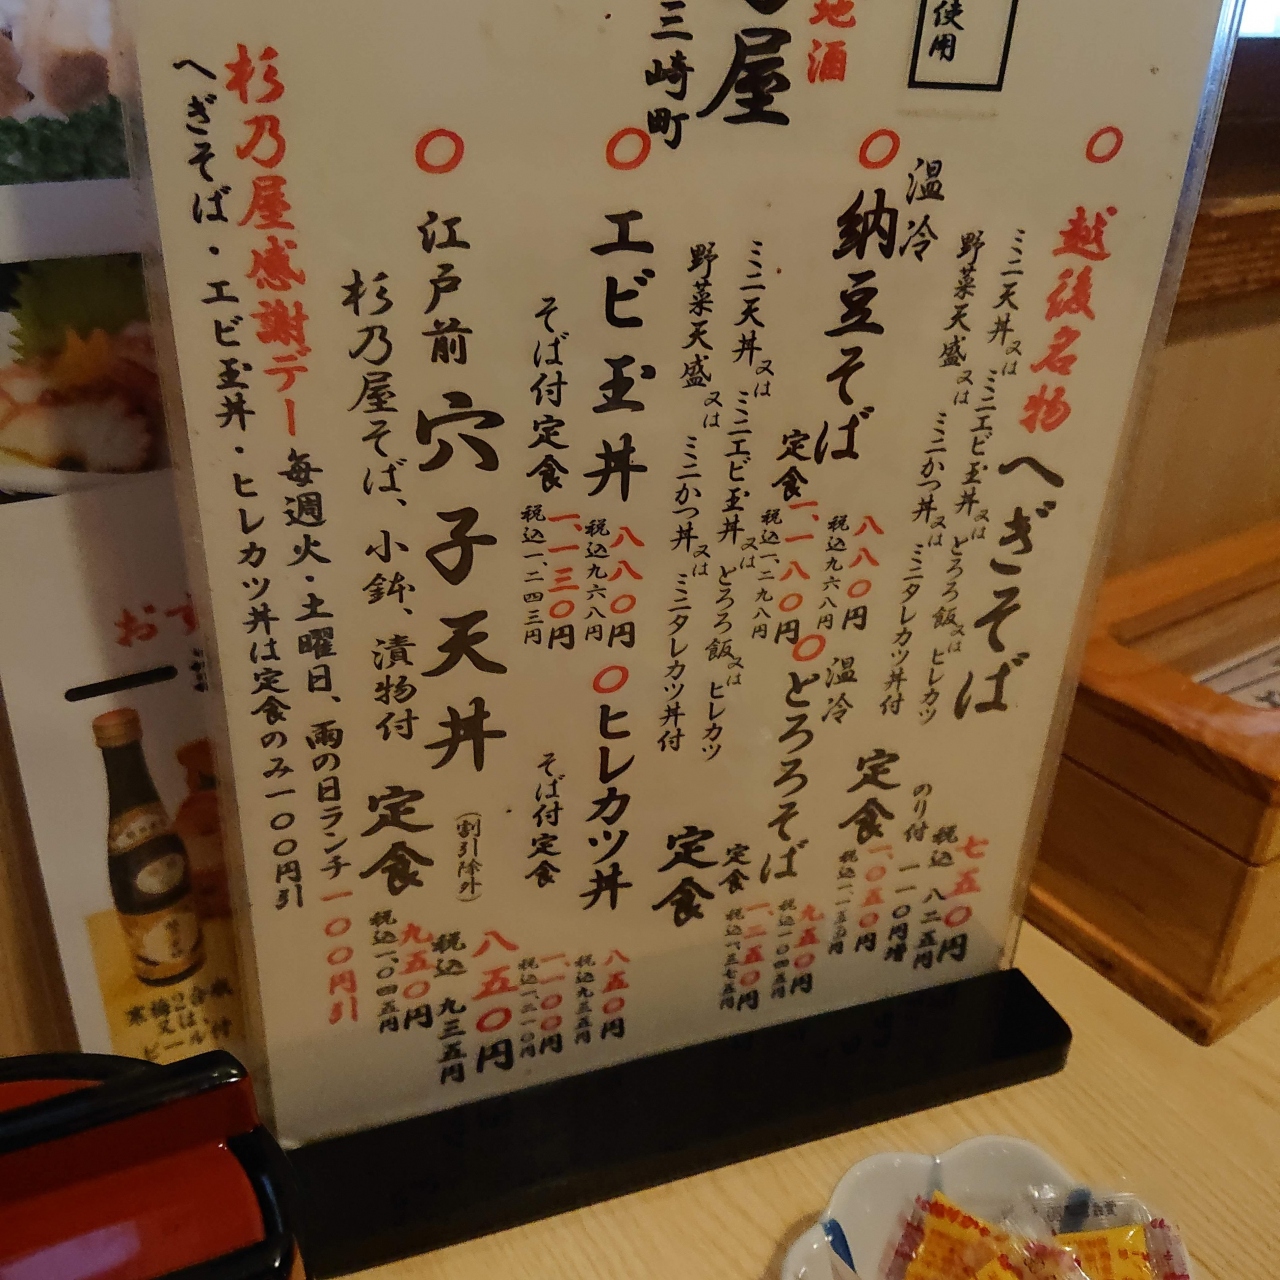 使用
地酒
屋
三崎町
○ 越後名物 へぎそば 七五〇円
税込 八二五円
のり付 一一〇円増
ミニ天丼又はミニエビ玉丼又はとろろ飯又はヒレカツ
野菜天盛又はミニかつ丼又はミニタレカツ丼付
定食 一、〇五〇円
税込一、一五五円
温冷
○ 納豆そば 八八〇円
税込九六八円
定食 一、一八〇円
税込一、二九八円
○ 温冷 とろろそば 九五〇円
税込一〇四五円
定食 一、二五〇円
税込一、三七五円
ミニ天丼又はミニエビ玉丼又はとろろ飯又はヒレカツ
野菜天盛又はミニかつ丼又はミニタレカツ丼付
定食
○ エビ玉丼 八八〇円
税込九六八円
そば付定食 一、一三〇円
税込一、二四三円
○ ヒレカツ丼 八五〇円
税込九三五円
そば付定食 一、一〇〇円
税込一、二一〇円
○ 江戸前 穴子天丼 八五〇円
(割引除外)
税込 九三五円
杉乃屋そば、小鉢、漬物付
定食 九五〇円
税込一、〇四五円
杉乃屋感謝デー 毎週火・土曜日、雨の日ランチ一〇〇円引
へぎそば・エビ玉丼・ヒレカツ丼は定食のみ一〇〇円引
おす
寒梅2合
又は、
ビール付